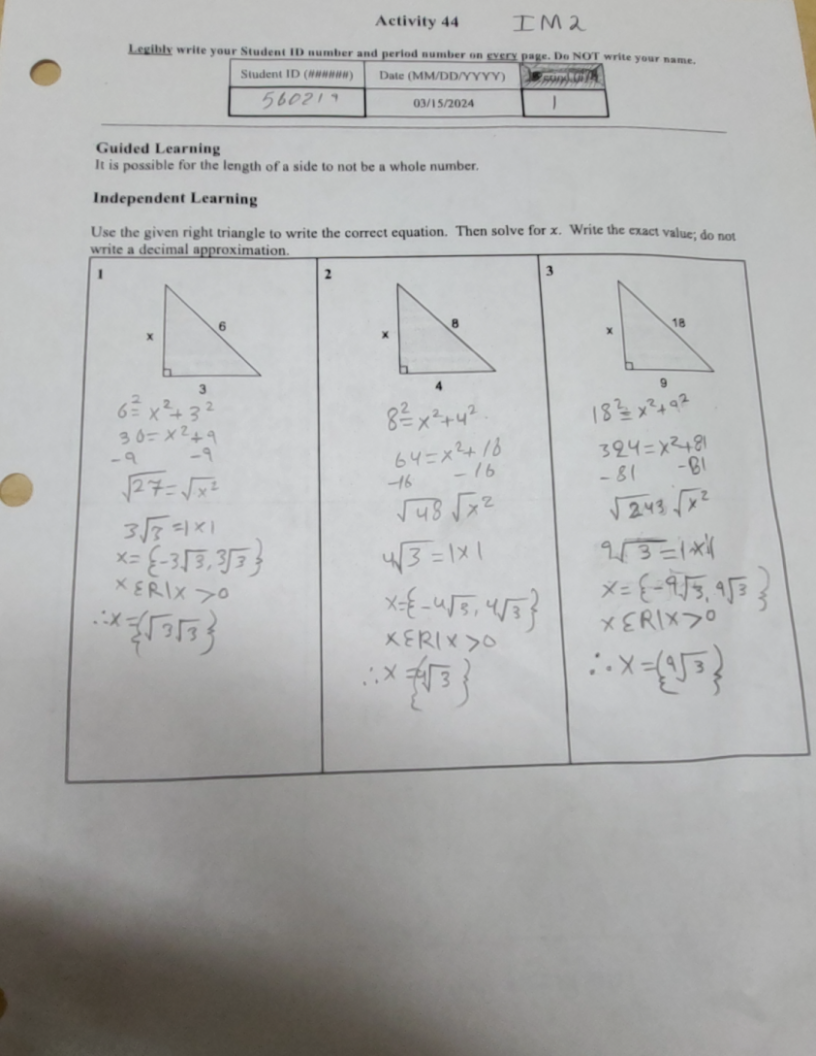 Activity 44 IM2
Legibly write your Student ID number and period number on every page. Do NOT write your name.
Student ID (######) Date (MM/DD/YYYY)
560219 03/15/2024 1
Guided Learning
It is possible for the length of a side to not be a whole number.
Independent Learning
Use the given right triangle to write the correct equation. Then solve for x. Write the exact value; do not
write a decimal approximation.
1
x
6
3
6²=x²+3²
36=x²+9
-9 -9
√27=√x²
3√3=|x|
x={-3√3, 3√3}
xεR|x>0
∴x={√3√3}
2
x
8
4
8²=x²+4²
64=x²+16
-16 -16
√48 √x²
4√3=|x|
x={-4√3, 4√3}
xεR|x>0
∴x={4√3}
3
x
18
9
18²=x²+9²
324=x²+81
-81 -81
√243 √x²
9√3=|x|
x={-9√3, 9√3}
xεR|x>0
∴x={9√3}